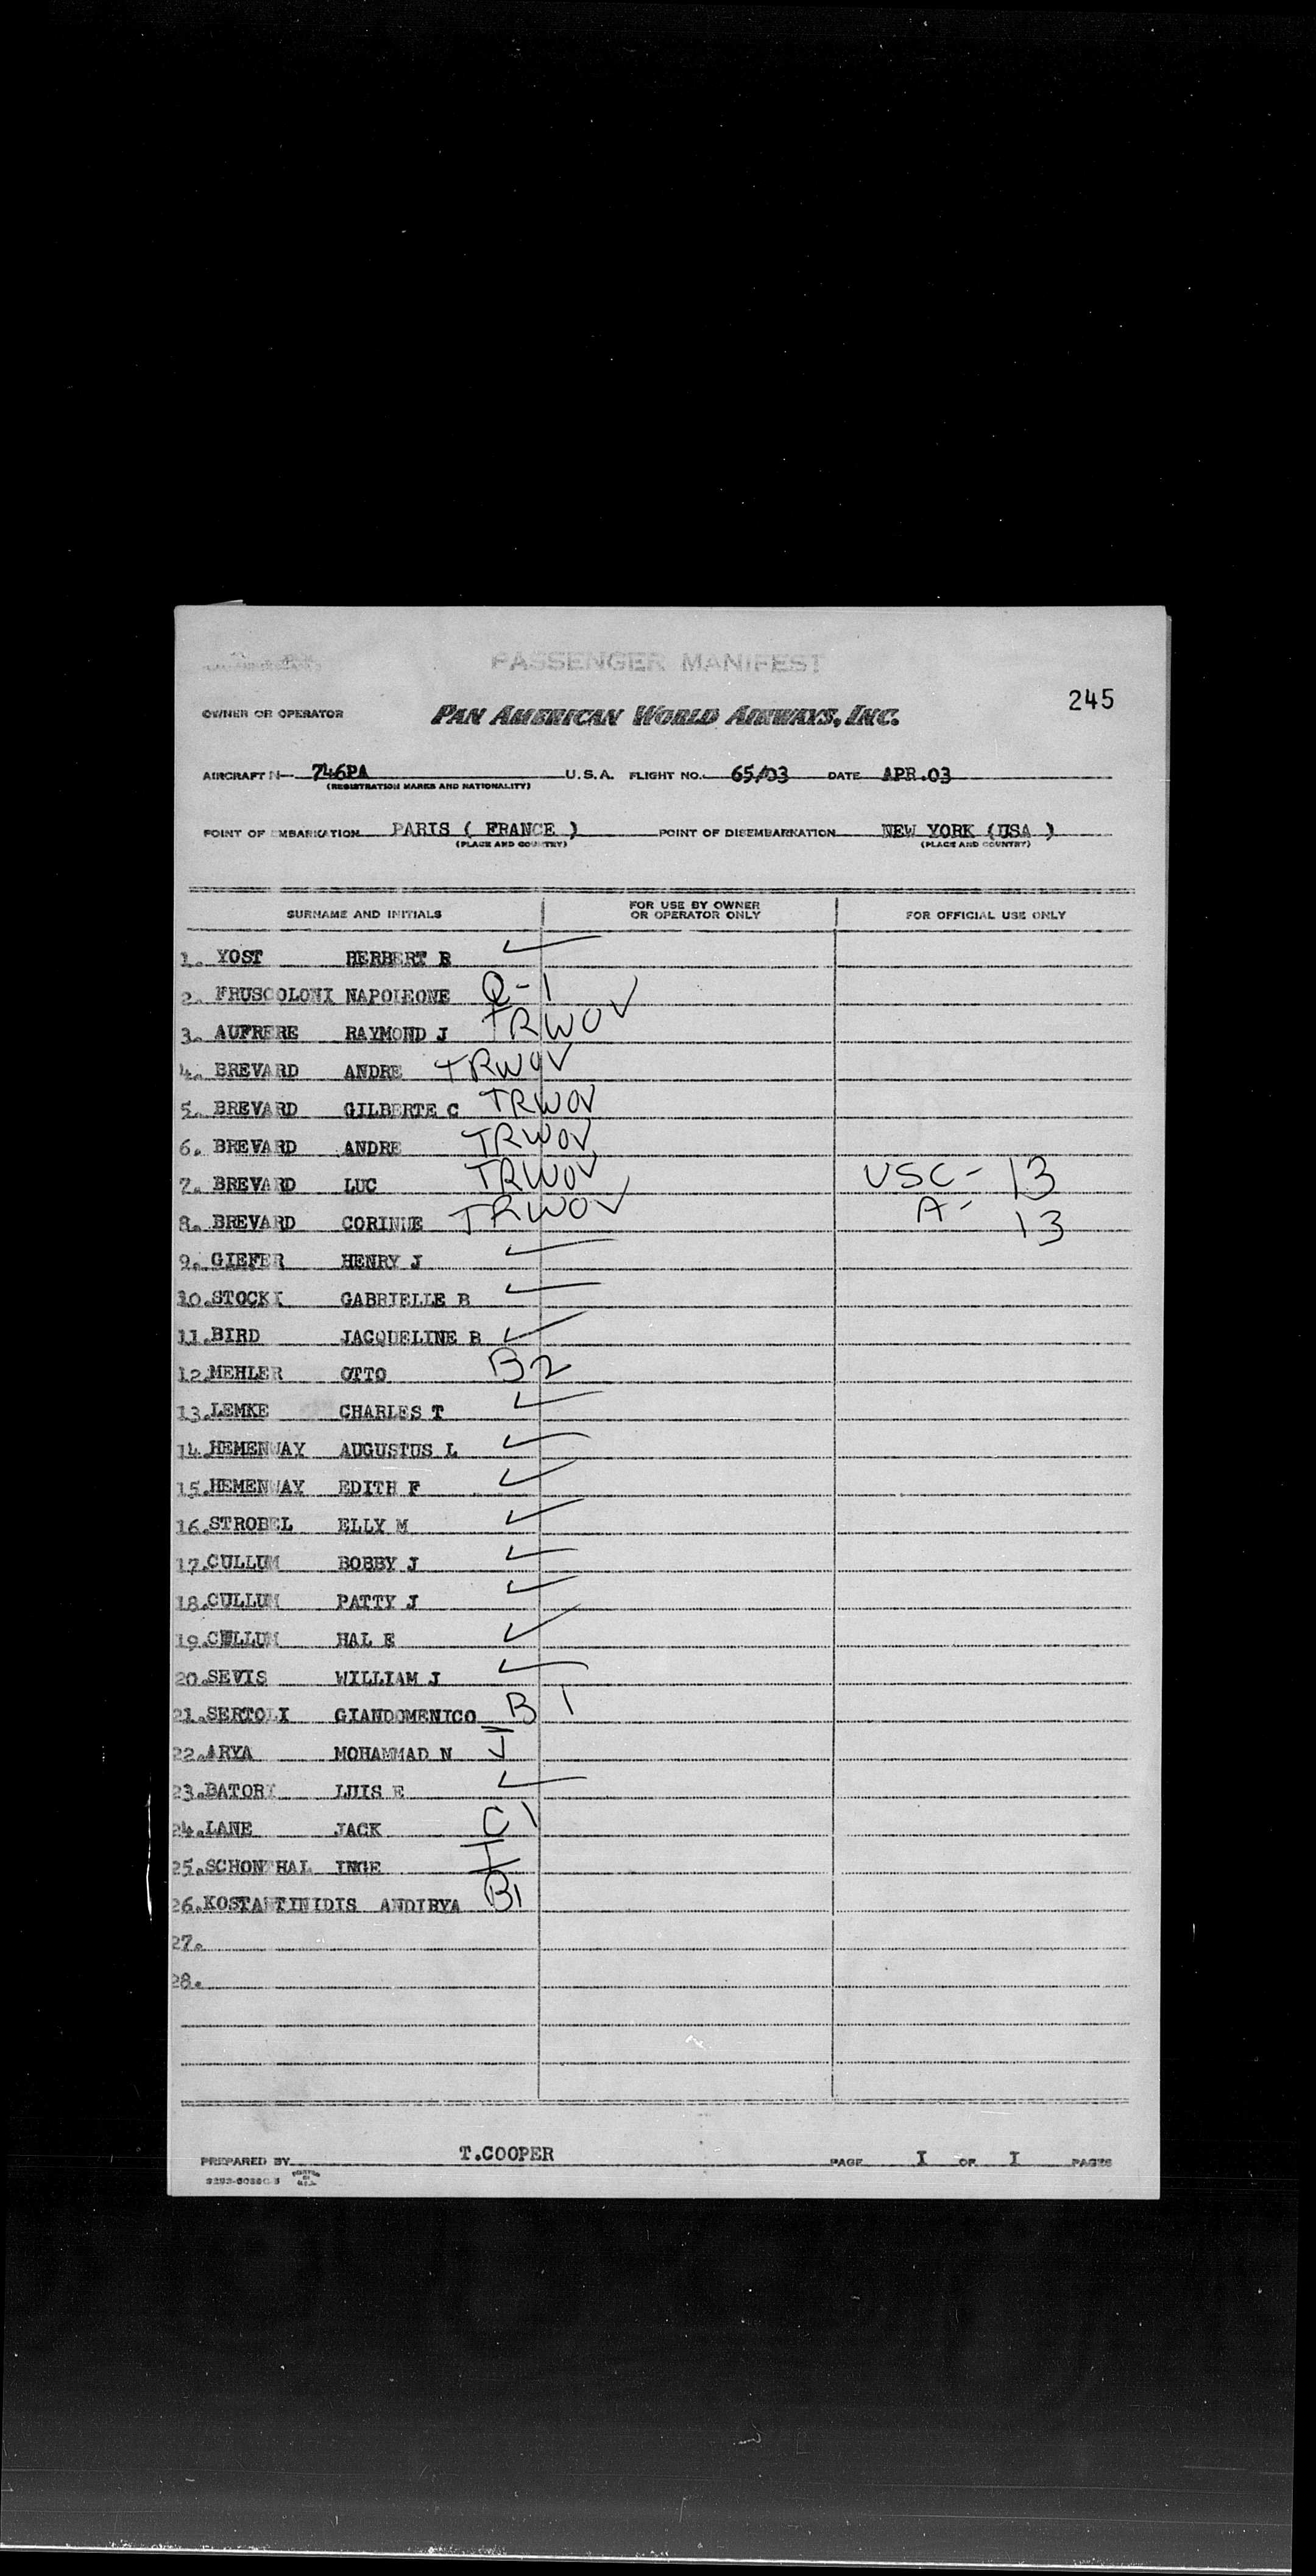 PASSENGER MANIFEST
245
OWNER OR OPERATOR PAN AMERICAN WORLD AIRWAYS, INC.
AIRCRAFT N— 746PA U.S.A. FLIGHT NO. 65/03 DATE APR.03
(REGISTRATION MARKS AND NATIONALITY)
POINT OF EMBARKATION PARIS ( FRANCE ) POINT OF DISEMBARKATION NEW YORK (USA )
(PLACE AND COUNTRY) (PLACE AND COUNTRY)
SURNAME AND INITIALS FOR USE BY OWNER OR OPERATOR ONLY FOR OFFICIAL USE ONLY
1. YOST HERBERT R ✓
2. FRUSCOLONI NAPOLEONE Q-1
3. AUFRERE RAYMOND J TRWOV
4. BREVARD ANDRE TRWOV
5. BREVARD GILBERTE C TRWOV
6. BREVARD ANDRE TRWOV
7. BREVARD LUC TRWOV USC- 13
8. BREVARD CORINNE TRWOV A- 13
9. GIEFER HENRY J ✓
10.STOCKI GABRIELLE B ✓
11.BIRD JACQUELINE B ✓
12.MEHLER OTTO B2
13.LEMKE CHARLES T ✓
14.HEMENWAY AUGUSTUS L ✓
15.HEMENWAY EDITH F ✓
16.STROBEL ELLY M ✓
17.CULLUM BOBBY J ✓
18.CULLUM PATTY J ✓
19.CULLUM HAL E ✓
20.SEVIS WILLIAM J ✓
21.SERTOLI GIANDOMENICO B 1
22.ARYA MOHAMMAD N J
23.BATORI LUIS E ✓
24.LANE JACK C1
25.SCHONTHAL INGE I
26.KOSTANTINIDIS ANDIRYA B1
27.
28.
PREPARED BY T.COOPER PAGE I OF I PAGES